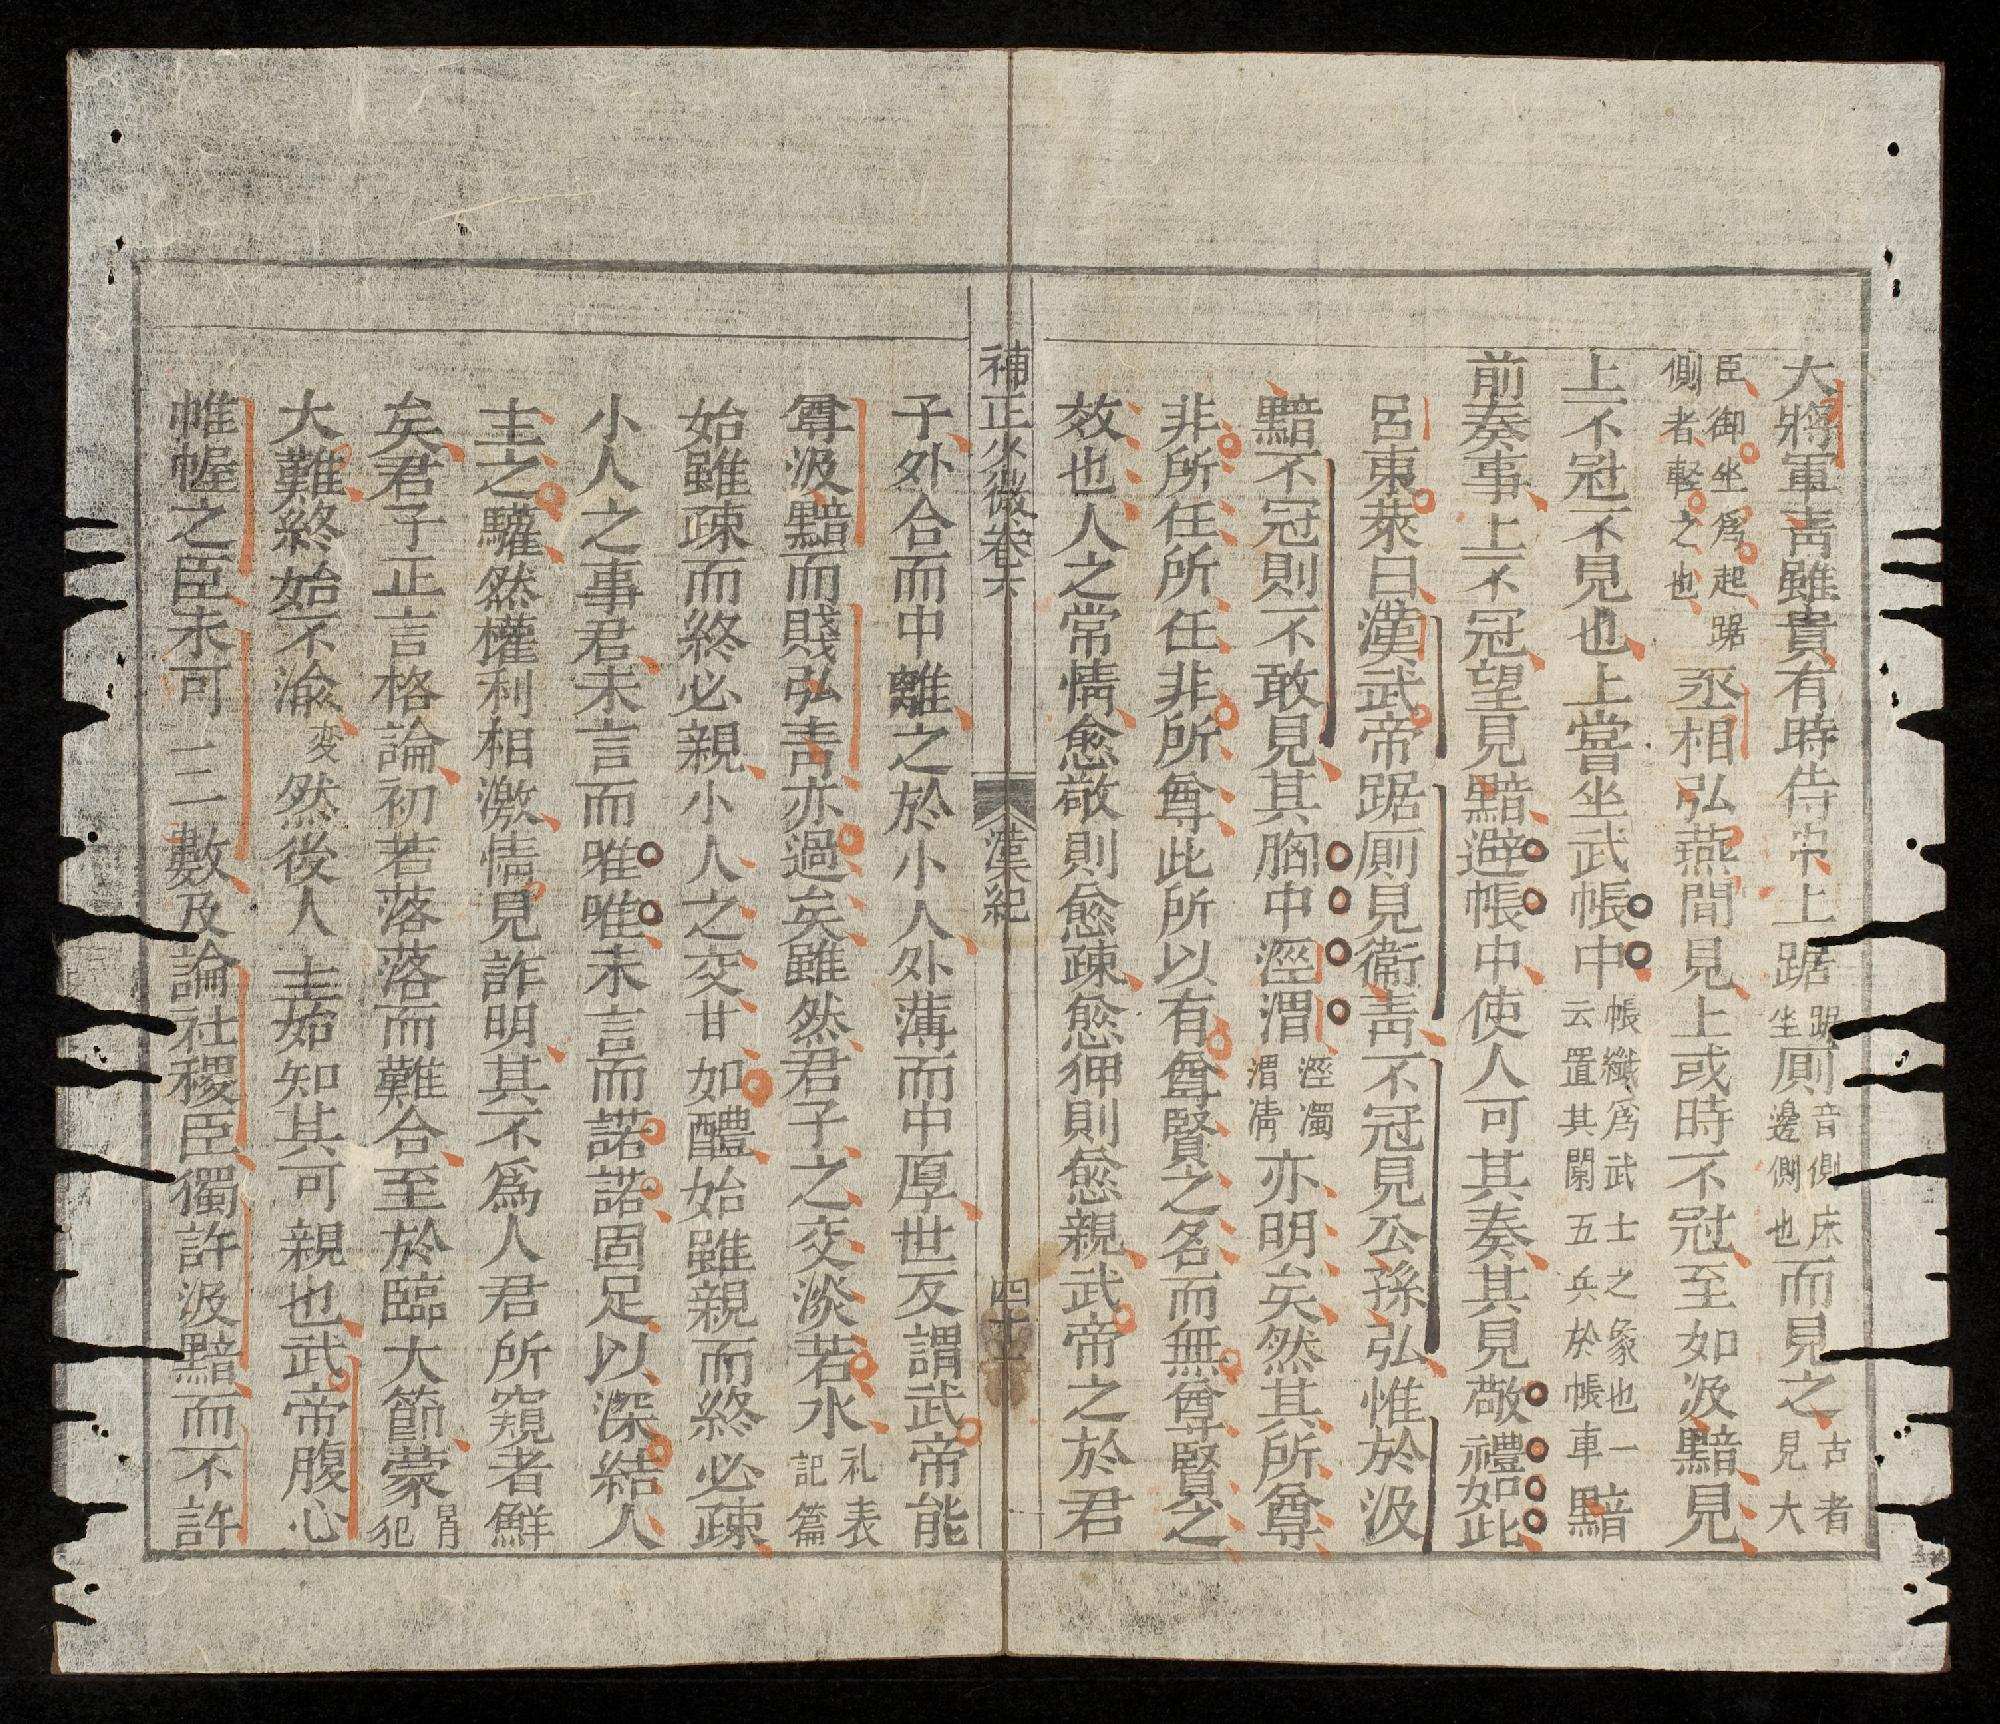 大將軍靑雖貴有時侍中上踞踞坐厠音側床邊側也而見之古者見大
臣御坐爲起踞側者輕之也丞相弘燕閒見上或時不冠至如汲黯見
上不冠不見也上嘗坐武帳中帳織爲武士之象也一云置其闌五兵於帳車黯
前奏事上不冠望見黯避帳中使人可其奏其見敬禮如此
呂東萊曰漢武帝踞厠見衞靑不冠見公孫弘惟於汲
黯不冠則不敢見其胸中涇渭涇濁渭淸亦明矣然其所尊
非所任所任非所尊此所以有尊賢之名而無尊賢之
效也人之常情愈敬則愈疎愈狎則愈親武帝之於君
補正少微卷六 漢紀 四十二
子外合而中離之於小人外薄而中厚世反謂武帝能
尊汲黯而賤弘靑亦過矣雖然君子之交淡若水礼表記篇
始雖疎而終必親小人之交甘如醴始雖親而終必疎
小人之事君未言而唯唯未言而諾諾固足以深結人
主之驩然權利相激情見詐明其不爲人君所窺者鮮
矣君子正言格論初若落落而難合至於臨大節蒙冒犯
大難終始不渝变然後人主始知其可親也武帝腹心
帷幄之臣未可一二數及論社稷臣獨許汲黯而不許